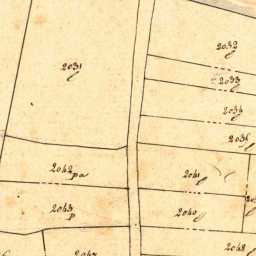 2032
2031
2033
2034
2035
2042
pa
2041
2043
p
2040
2048